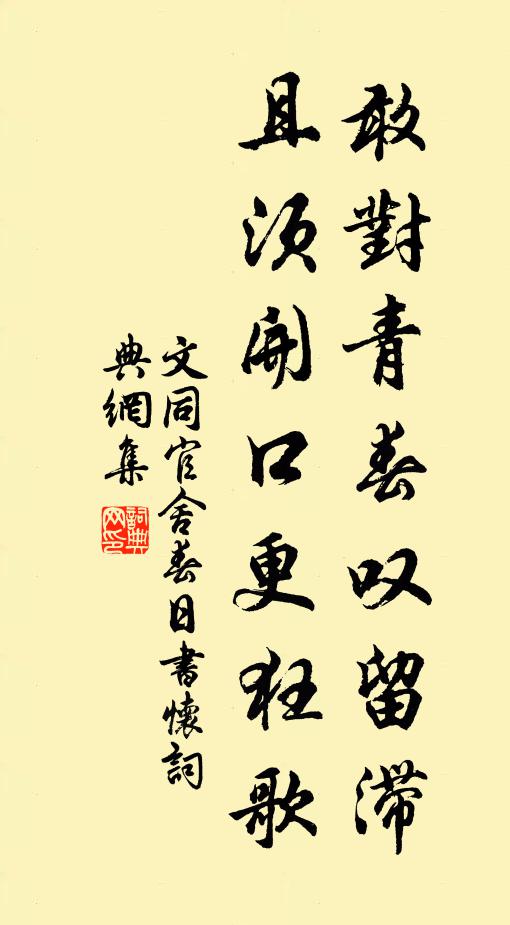 敢對青春叹留滯
且須開口更狂歌
文同官舍春日書懷詞
典網集
詞典網印